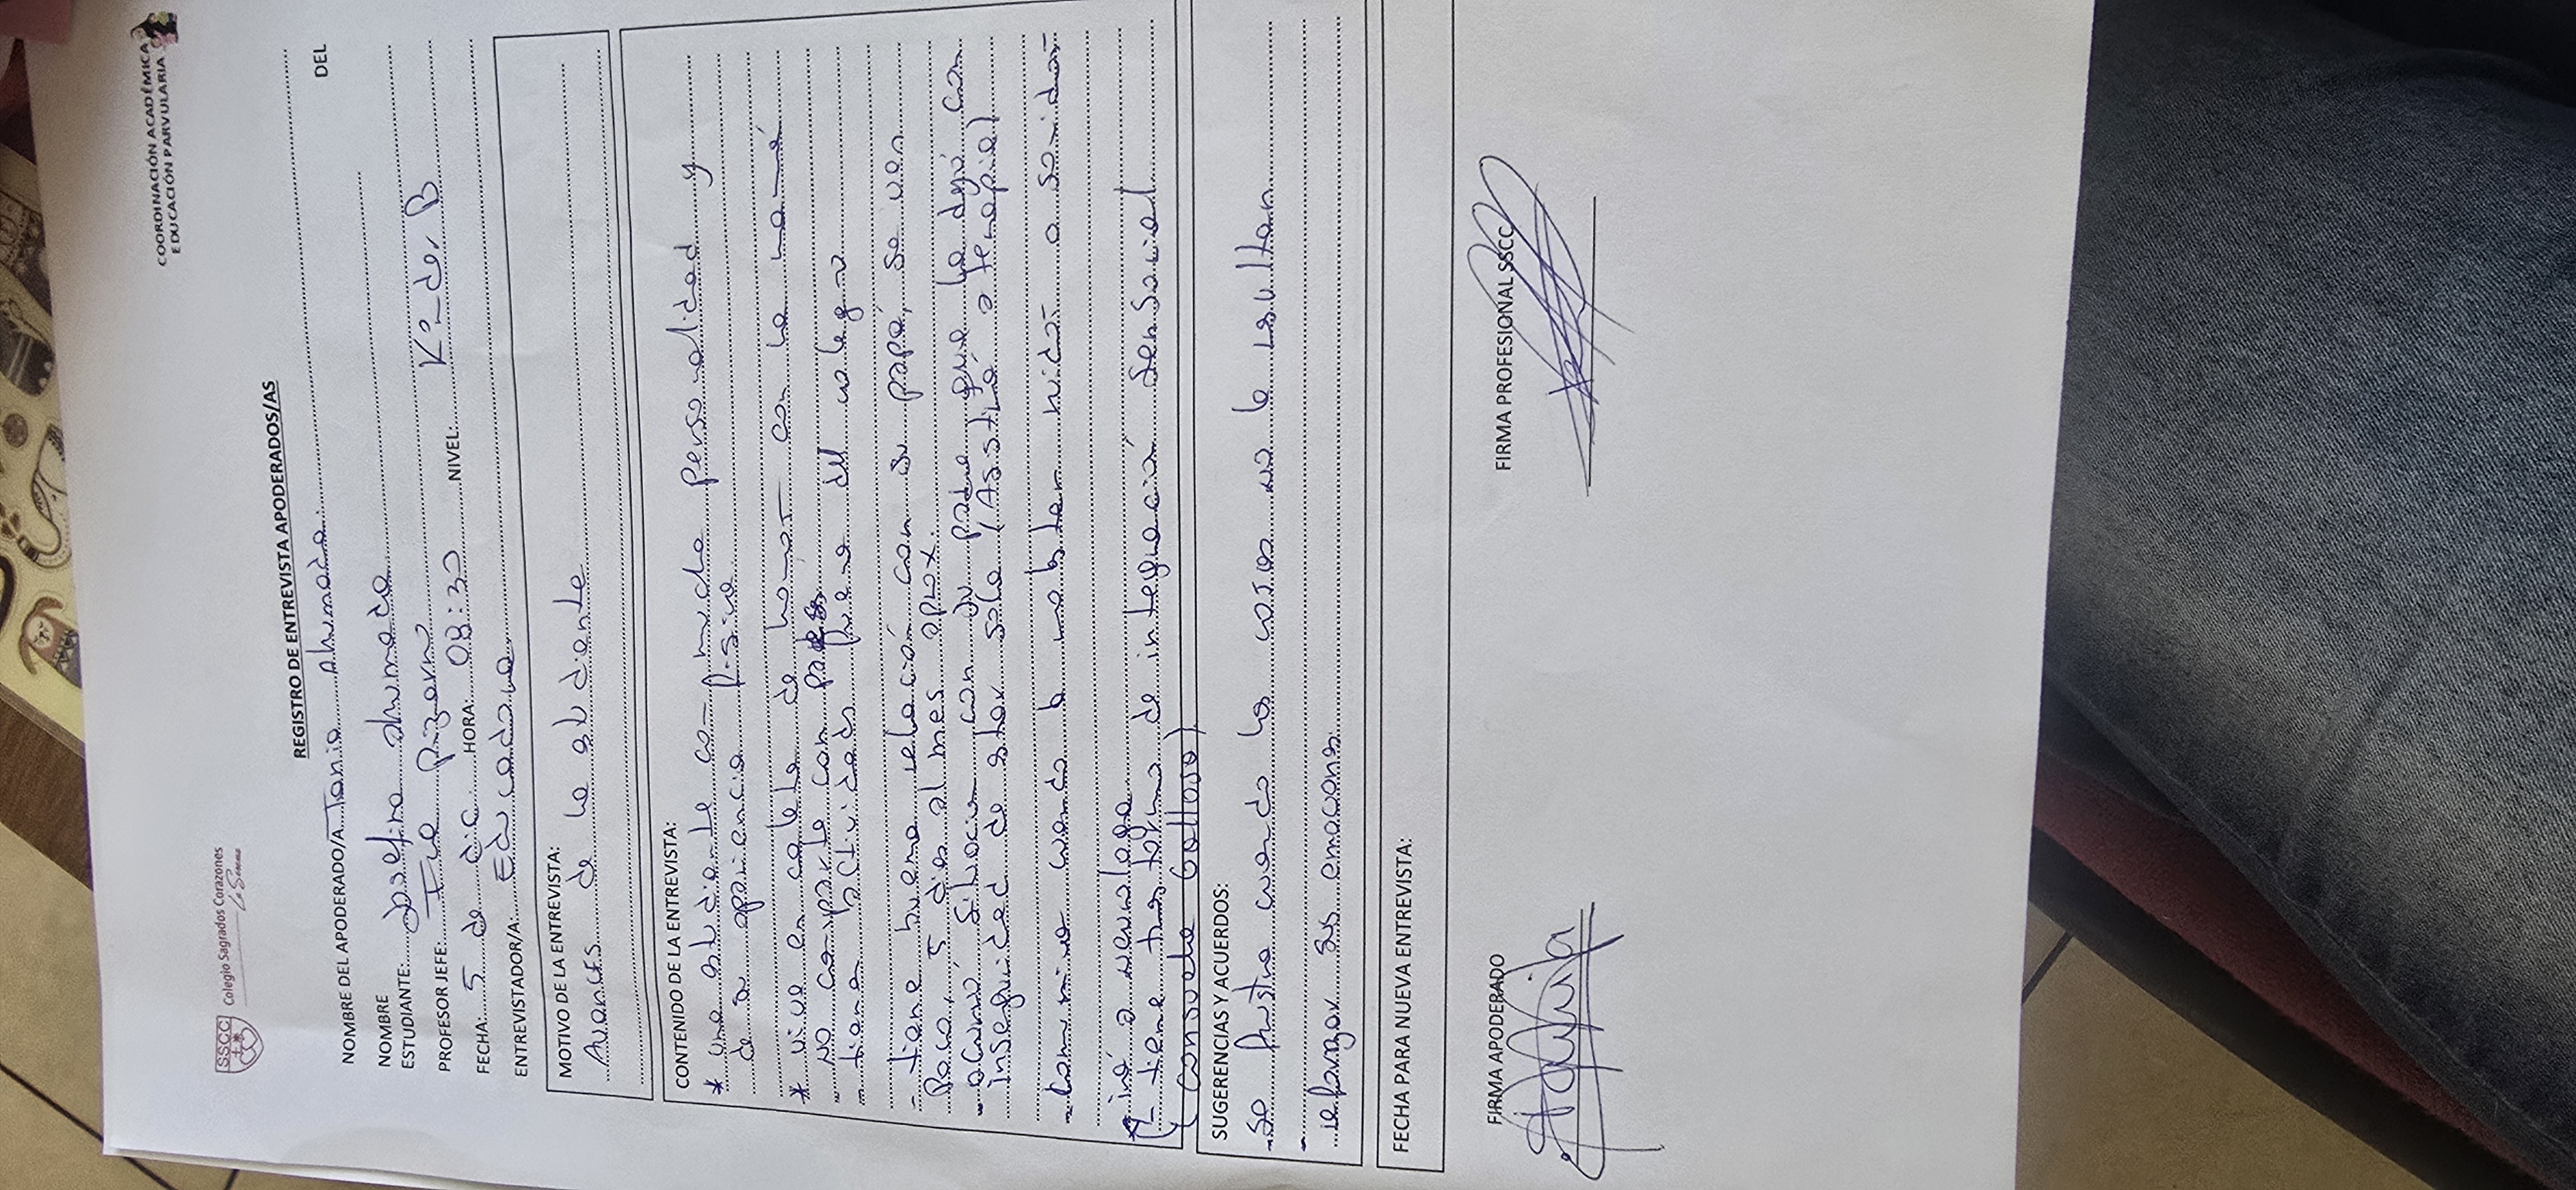 SSCC Colegio Sagrados Corazones
La Serena
COORDINACIÓN ACADÉMICA
EDUCACIÓN PARVULARIA
REGISTRO DE ENTREVISTA APODERADOS/AS
NOMBRE DEL APODERADO/A Tania Ahumada DEL
NOMBRE
ESTUDIANTE: Josefina Ahumada
PROFESOR JEFE: Pizarro
FECHA: 5 de dic HORA: 08:30 NIVEL: Kinder B
ENTREVISTADOR/A: Educadora
MOTIVO DE LA ENTREVISTA:
Avances de la estudiante
CONTENIDO DE LA ENTREVISTA:
* una estudiante con mucha personalidad y
de su apariencia física
* vive en calete de con la mamá
- no comparte con
- tienen actividades fuera del colegio
- tiene buena relación con su papá, se ven
Poco, 5 días al mes aprox.
- ocurrió situación con su padre que la dejó con
inseguridad de estar sola (Asistió a terapia)
- Comunica cuando le molestan ruidos o sonidos
* irá a neurologa
(- tiene trastorno de integración sensorial
(Consuelo Gallardo)
SUGERENCIAS Y ACUERDOS:
- Se frustra cuando las cosas no le resultan
- reforzar sus emociones
FECHA PARA NUEVA ENTREVISTA:
FIRMA APODERADO
FIRMA PROFESIONAL SSCC